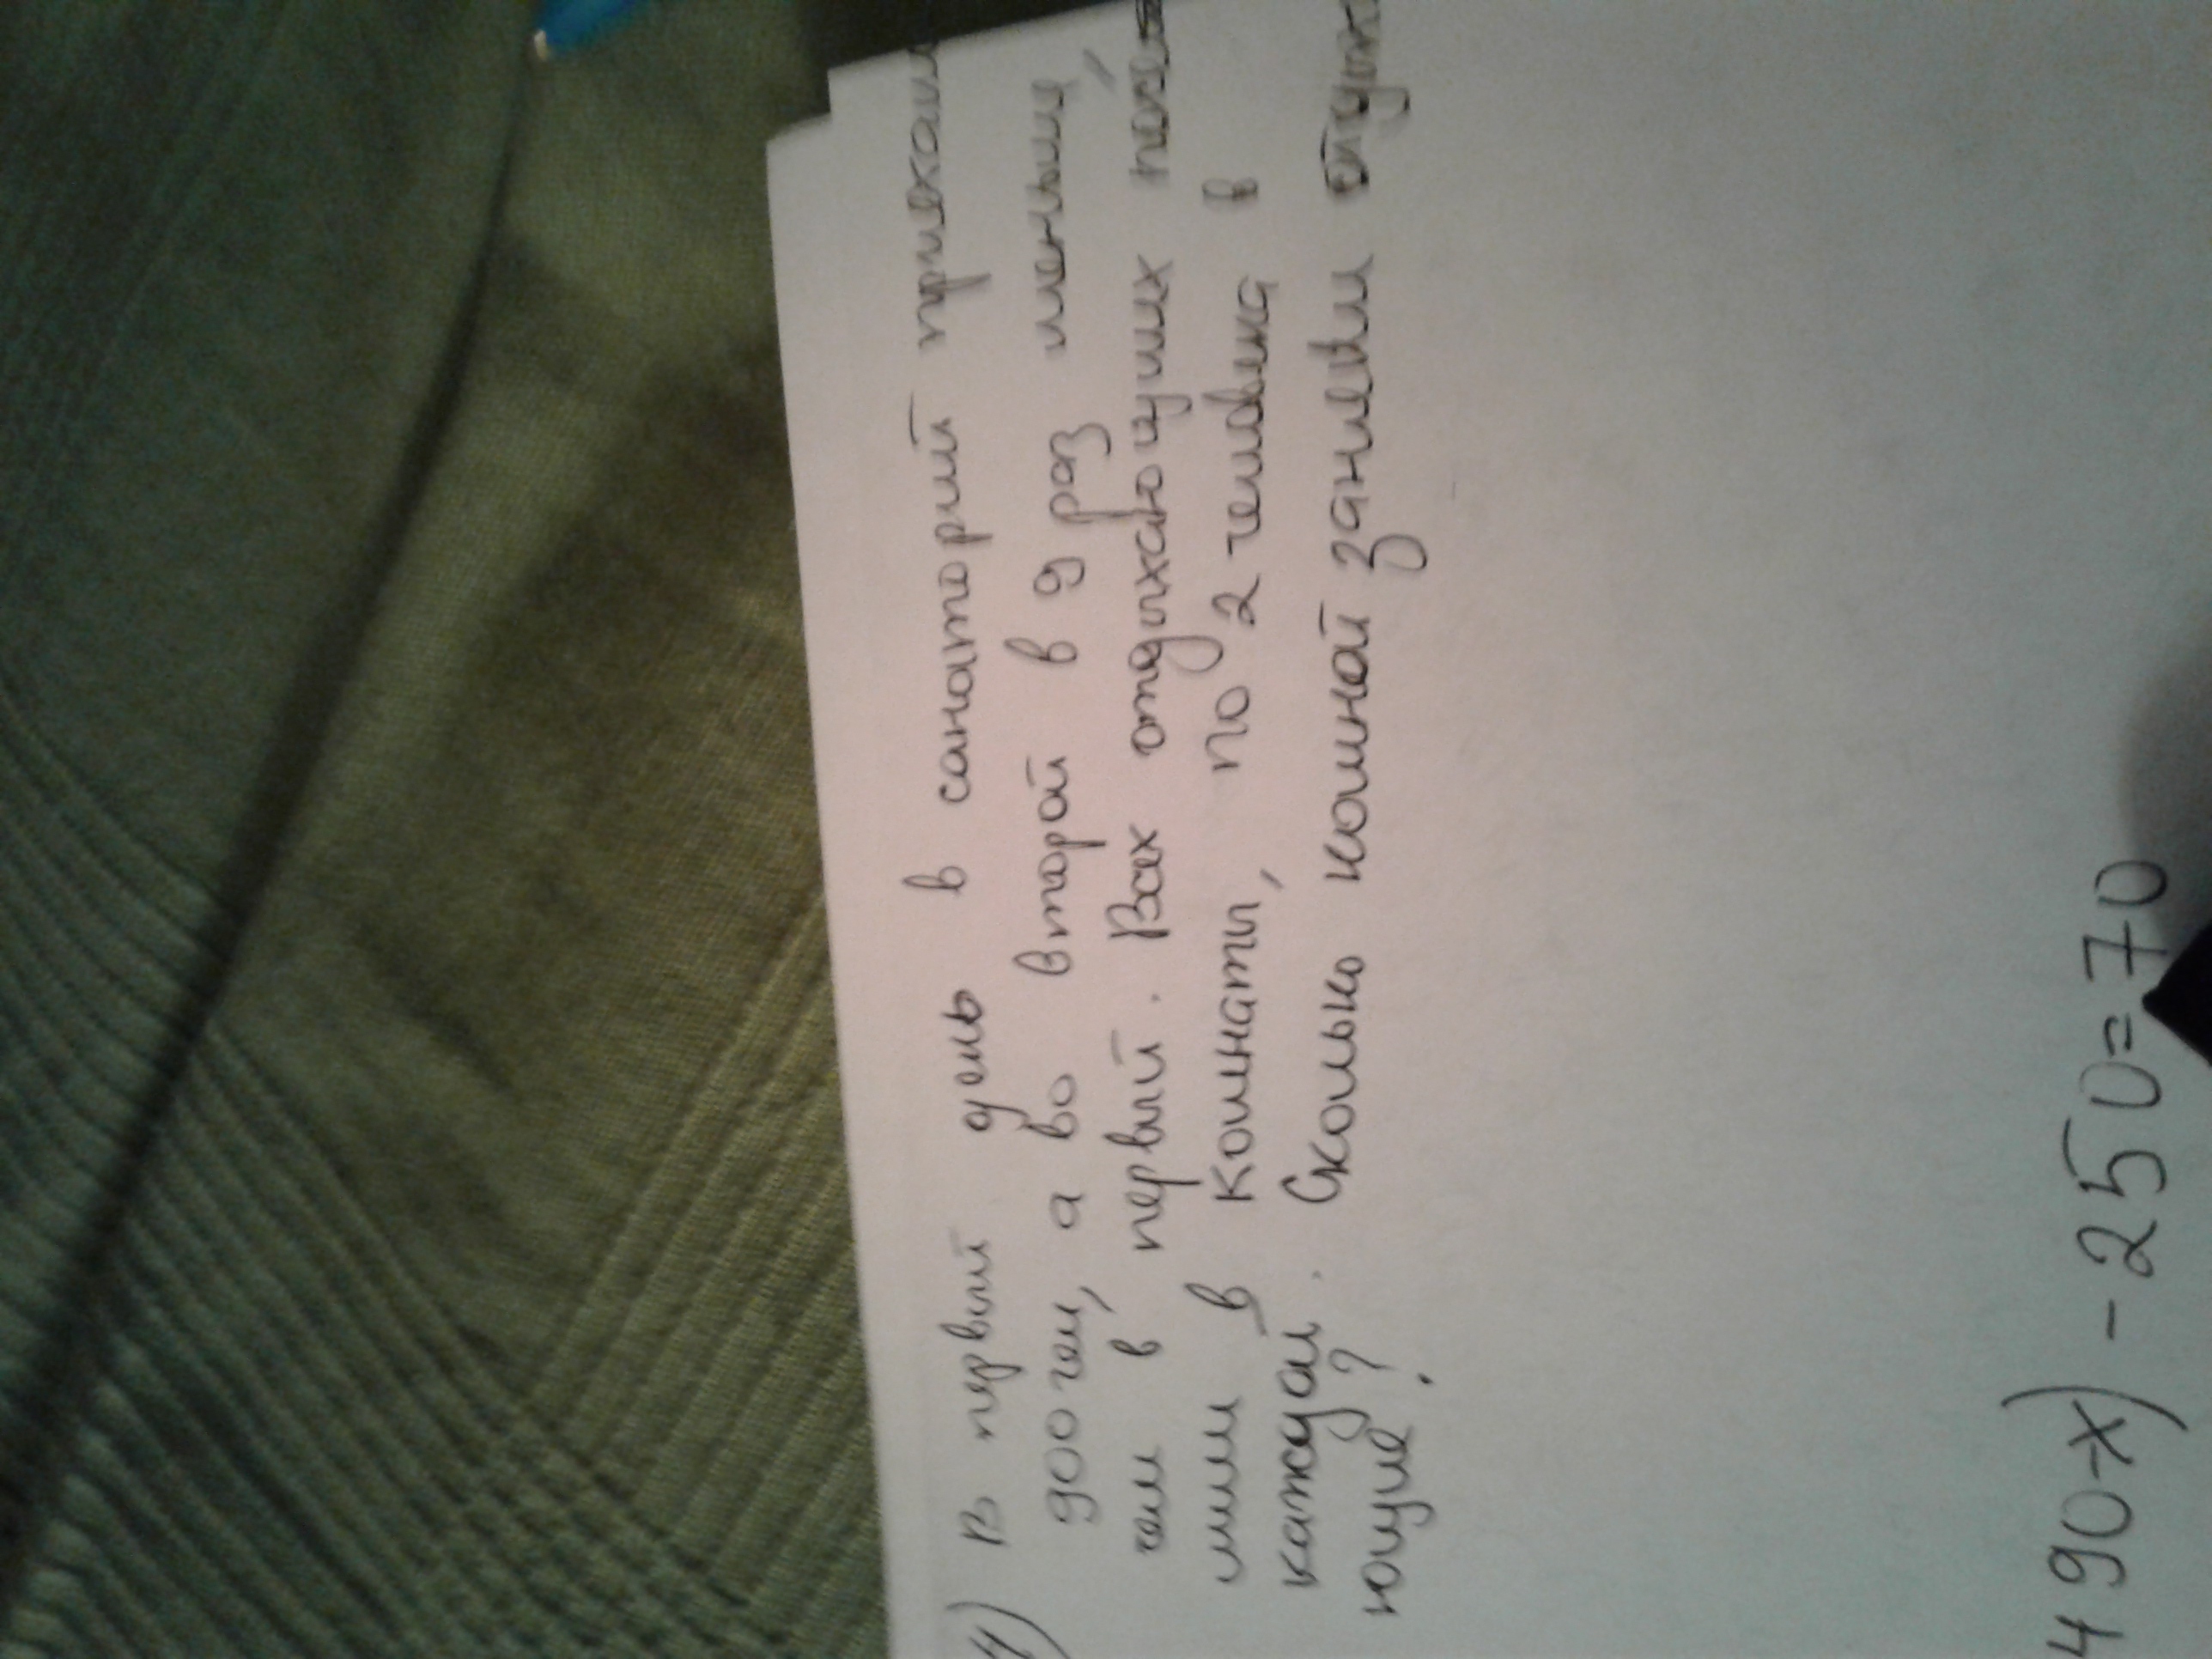 4) В первый день в санаторий приехали
900 чел, а во второй в 9 раз меньше,
чем в первый. Всех отдыхающих посе
лили в комнаты, по 2 человека в
каждой. Сколько комнат заняли отдыха
ющие?
490-х) - 250=70